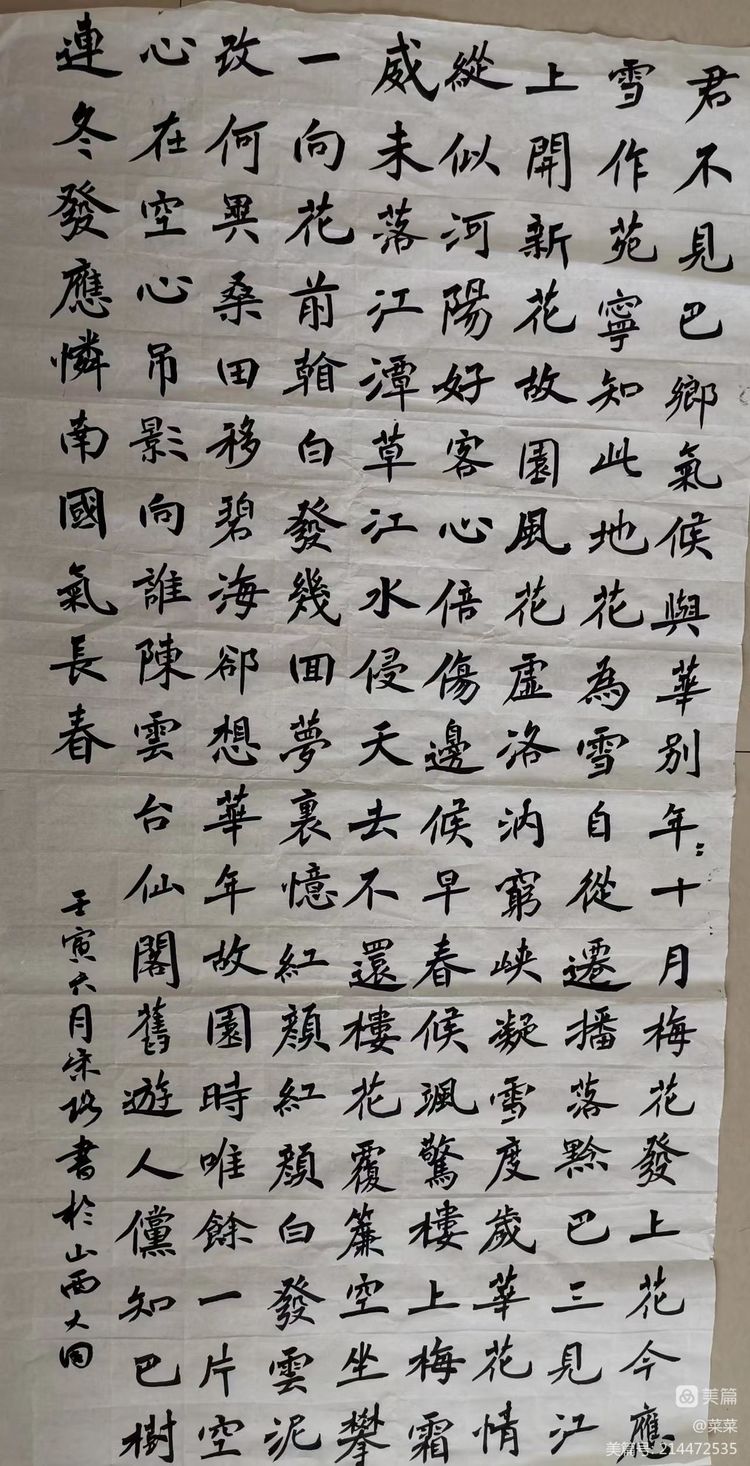 君不見巴鄉氣候與華別年〻十月梅花發上花今應
雪作苑寧知此地花為雪自從遷播落黔巴三見江
上開新花故園風花虛洛汭窮峽凝雪度歲華花情
縱似河陽好客心倍傷邊候早春候颯驚樓上梅霜
威未落江潭草江水侵天去不還樓花覆簾空坐攀
一向花前翰白發幾囬夢裏憶紅顏紅顏白發雲泥
改何異桑田移碧海卻想華年故園時唯餘一片空
心在空心吊影向誰陳雲台仙閣舊遊人儻知巴樹
連冬發應憐南國氣長春
壬寅六月宋書於山西大同
美篇
@菜菜
美篇号: 214472535